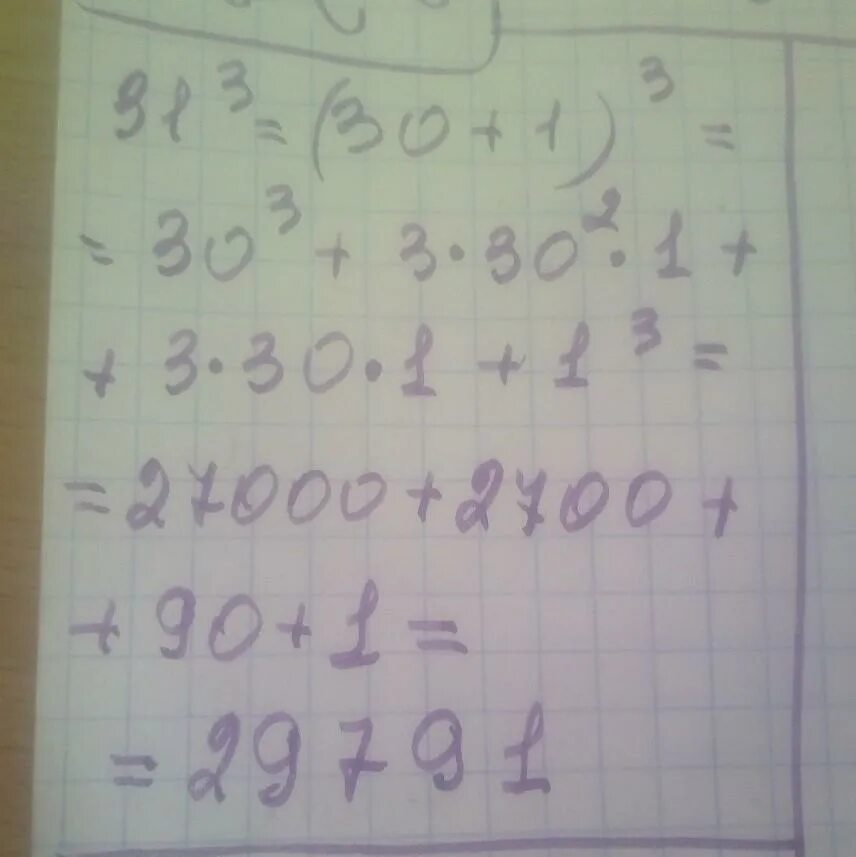 31³ = (30 + 1)³ =
= 30³ + 3·30²·1 +
+ 3·30·1 + 1³ =
= 27000 + 2700 +
+ 90 + 1 =
= 29791